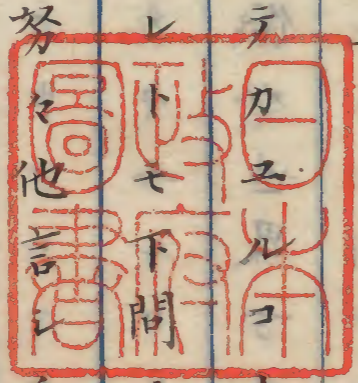 テカエルコ
レトモ下問
努々他言
日本
政府
圖書